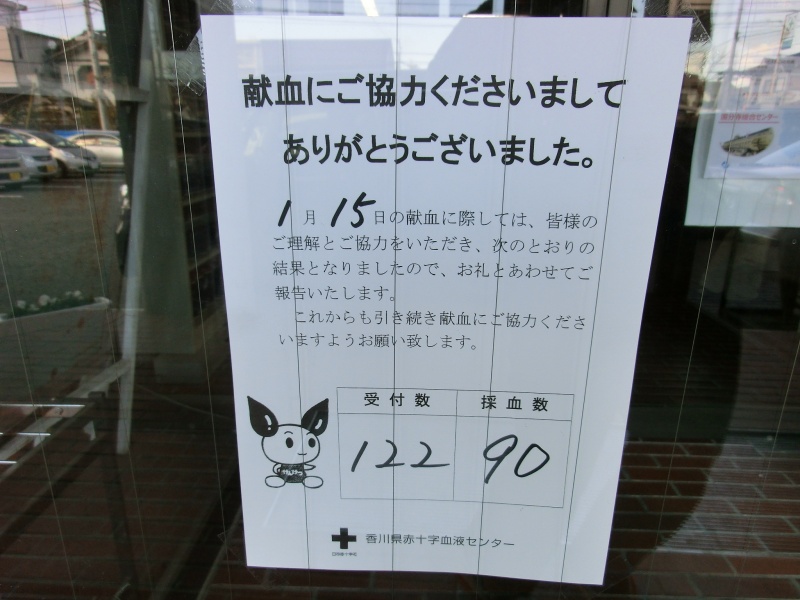 献血にご協力くださいまして
ありがとうございました。
1月15日の献血に際しては、皆様の
ご理解とご協力をいただき、次のとおりの
結果となりましたので、お礼とあわせてご
報告いたします。
これからも引き続き献血にご協力くださ
いますようお願い致します。
受付数 採血数
122 90
香川県赤十字血液センター